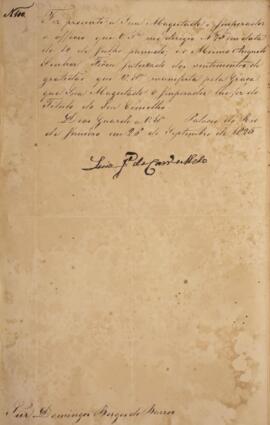 Fiz presente a Sua Magestade o Imperador
o officio que V. Sª me dirigio Nº 30 em data
de 10 de Julho passado, e o Mesmo Augusto
Senhor Ficou inteirado dos sentimentos de
gratidão que V. Sª manifesta pela Graça
que Sua Magestade o Imperador lhe fez do
Titulo do Seu Conselho
Deos Guarde a V. Sª Palacio do Rio
de Janeiro em 26 de Septembro de 1826
Snr Domingos Borges de Barros